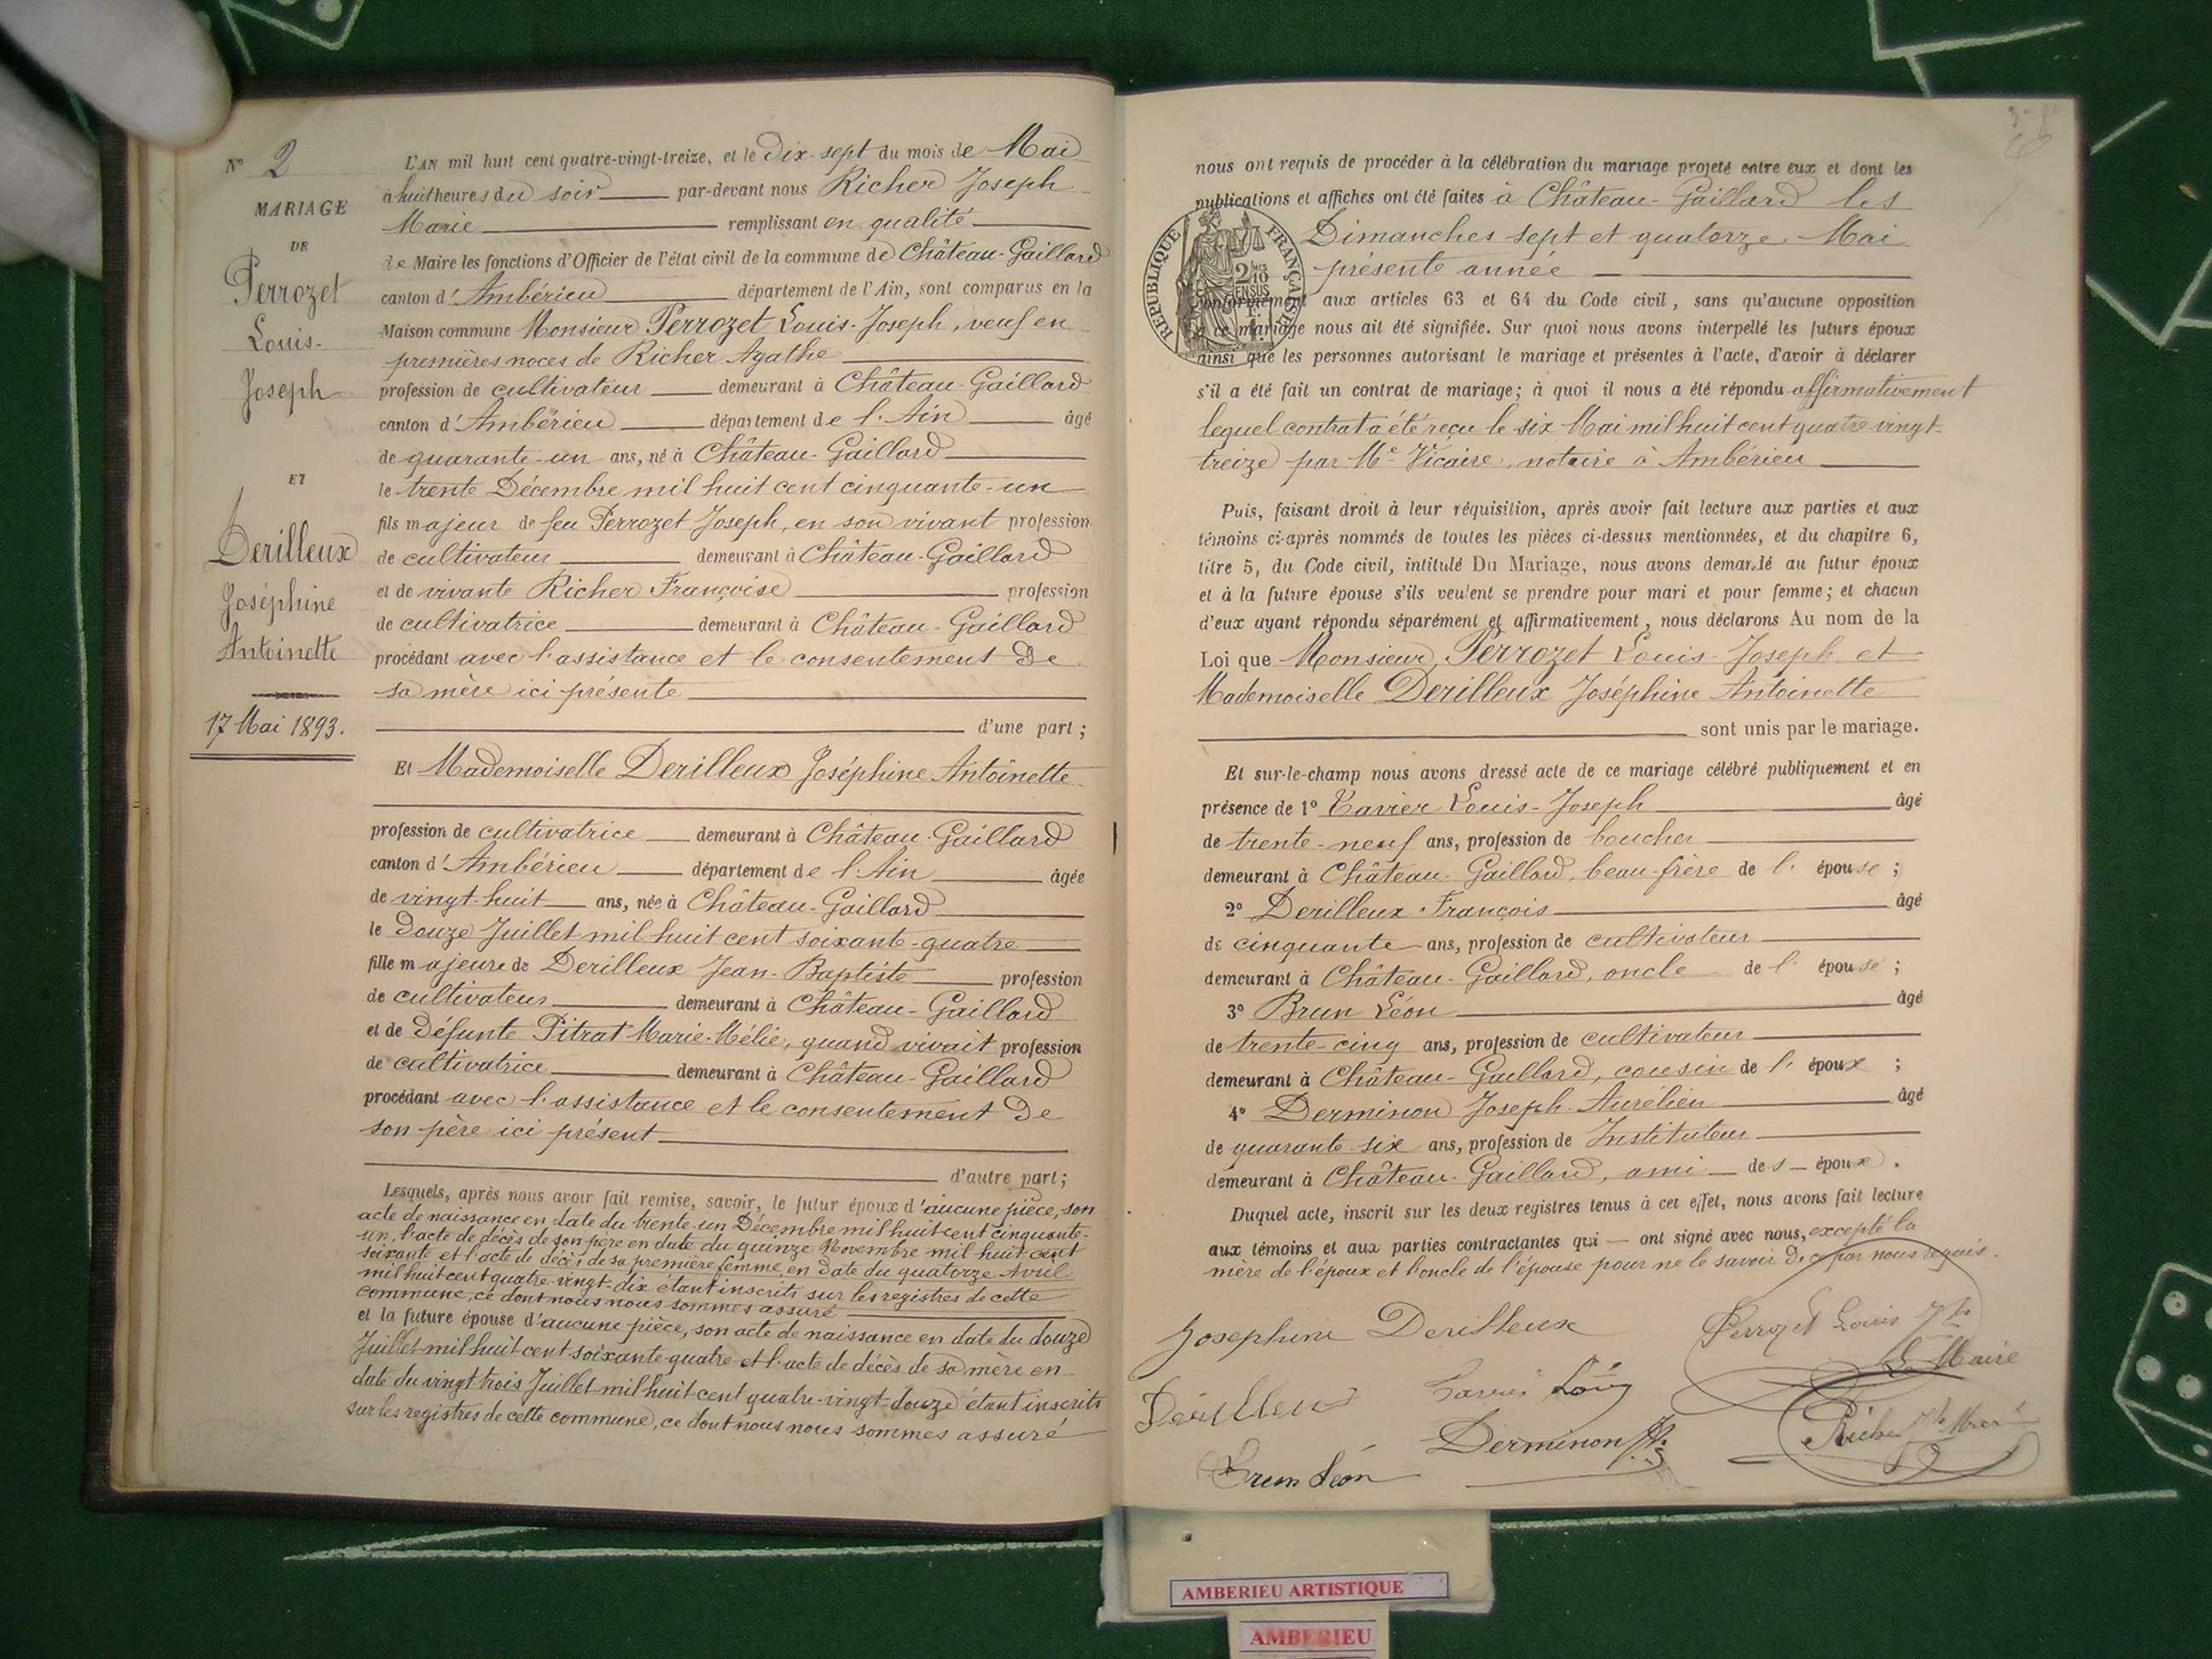 N° 2
MARIAGE
DE
Perrozet
Louis-
Joseph
ET
Derilleux
Joséphine
Antoinette
17 Mai 1893.
L'AN mil huit cent quatre-vingt-treize, et le dix-sept du mois de Mai
à huit heures du soir par-devant nous Richer Joseph
Marie remplissant en qualité
de Maire les fonctions d'Officier de l'état civil de la commune de Château-Gaillard
canton d'Ambérieu département de l'Ain, sont comparus en la
Maison commune Monsieur Perrozet Louis-Joseph, veuf en
premières noces de Richer Agathe
profession de cultivateur demeurant à Château-Gaillard
canton d'Ambérieu département de l'Ain âgé
de quarante-un ans, né à Château-Gaillard
le trente Décembre mil huit cent cinquante-un
fils majeur de feu Perrozet Joseph, en son vivant profession
de cultivateur demeurant à Château-Gaillard
et de vivante Richer Françoise profession
de cultivatrice demeurant à Château-Gaillard
procédant avec l'assistance et le consentement de
sa mère ici présente
d'une part ;
Et Mademoiselle Derilleux Joséphine Antoinette
profession de cultivatrice demeurant à Château-Gaillard
canton d'Ambérieu département de l'Ain âgée
de vingt-huit ans, née à Château-Gaillard
le douze Juillet mil huit cent soixante-quatre
fille majeure de Derilleux Jean-Baptiste profession
de cultivateur demeurant à Château-Gaillard
et de défunte Pitrat Marie-Mélie, quand vivait profession
de cultivatrice demeurant à Château-Gaillard
procédant avec l'assistance et le consentement de
son père ici présent
d'autre part;
Lesquels, après nous avoir fait remise, savoir, le futur époux d'aucune pièce, son
acte de naissance en date du trente-un Décembre mil huit cent cinquante-
un, l'acte de décès de son père en date du quinze Novembre mil huit cent
soixante et l'acte de décès de sa première femme en date du quatorze Avril
mil huit cent quatre-vingt-dix étant inscrits sur les registres de cette
commune, ce dont nous nous sommes assuré
et la future épouse d'aucune pièce, son acte de naissance en date du douze
Juillet mil huit cent soixante-quatre et l'acte de décès de sa mère en
date du vingt trois Juillet mil huit cent quatre-vingt-douze étant inscrits
sur les registres de cette commune, ce dont nous nous sommes assuré
nous ont requis de procéder à la célébration du mariage projeté entre eux et dont les
publications et affiches ont été faites à Château-Gaillard les
Dimanches sept et quatorze Mai
présente année
RÉPUBLIQUE FRANÇAISE
conformément aux articles 63 et 64 du Code civil, sans qu'aucune opposition
à ce mariage nous ait été signifiée. Sur quoi nous avons interpellé les futurs époux
ainsi que les personnes autorisant le mariage et présentes à l'acte, d'avoir à déclarer
s'il a été fait un contrat de mariage; à quoi il nous a été répondu affirmativement
lequel contrat a été reçu le six Mai mil huit cent quatre vingt-
treize par Me Vicaire, notaire à Ambérieu
Puis, faisant droit à leur réquisition, après avoir fait lecture aux parties et aux
témoins ci-après nommés de toutes les pièces ci-dessus mentionnées, et du chapitre 6,
titre 5, du Code civil, intitulé Du Mariage, nous avons demandé au futur époux
et à la future épouse s'ils veulent se prendre pour mari et pour femme ; et chacun
d'eux ayant répondu séparément et affirmativement, nous déclarons Au nom de la
Loi que Monsieur Perrozet Louis-Joseph et
Mademoiselle Derilleux Joséphine Antoinette
sont unis par le mariage.
Et sur-le-champ nous avons dressé acte de ce mariage célébré publiquement et en
présence de 1° Tavier Louis-Joseph âgé
de trente-neuf ans, profession de boucher
demeurant à Château-Gaillard, beau-frère de l'épouse ;
2° Derilleux François âgé
de cinquante ans, profession de cultivateur
demeurant à Château-Gaillard, oncle de l'épouse ;
3° Brun Léon âgé
de trente-cinq ans, profession de cultivateur
demeurant à Château-Gaillard, cousin de l'époux ;
4° Derminon Joseph-Aurélien âgé
de quarante-six ans, profession de Instituteur
demeurant à Château-Gaillard, ami des époux.
Duquel acte, inscrit sur les deux registres tenus à cet effet, nous avons fait lecture
aux témoins et aux parties contractantes qui ont signé avec nous, excepté la
mère de l'époux et l'oncle de l'épouse pour ne le savoir de ce par nous requis.
Josephine Derilleux
Perrozet Louis Jh
Le Maire
Derilleux
Louis
Derminon
Richer Jh Marie
Brun Léon
AMBERIEU ARTISTIQUE
AMBERIEU